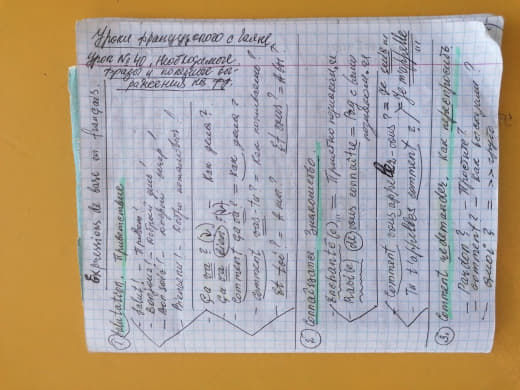 Уроки французского с Ваяне
Урок №40. Необходимые
фразы и
выражения на фр.
Expressions de base en français.
1) Salutation Приветствие
- Salut! - Привет!
- Bonjour! - добрый день!
- Bonsoir! - добрый вечер!
- Bienvenu! - добро пожаловать!
- Ça va? - Как дела?
- Ça va bien?
- Comment ça va? = Как дела?
- Comment vas-tu? = Как поживаешь?
- Et toi? = А ты? Et vous? = А вы?
2) Connaissance Знакомство.
- Enchanté(e) = Приятно познакомиться
Ravi(e) de vous connaître = Рад с вами
познакомиться
- Comment vous appelez-vous? = Je suis
- Tu t'appelles comment? / Je m'appelle
3) Comment redemander. Как переспросить
- Pardon? - Простите?
= Comment? - Как вы сказали?
- Quoi? = >> грубо